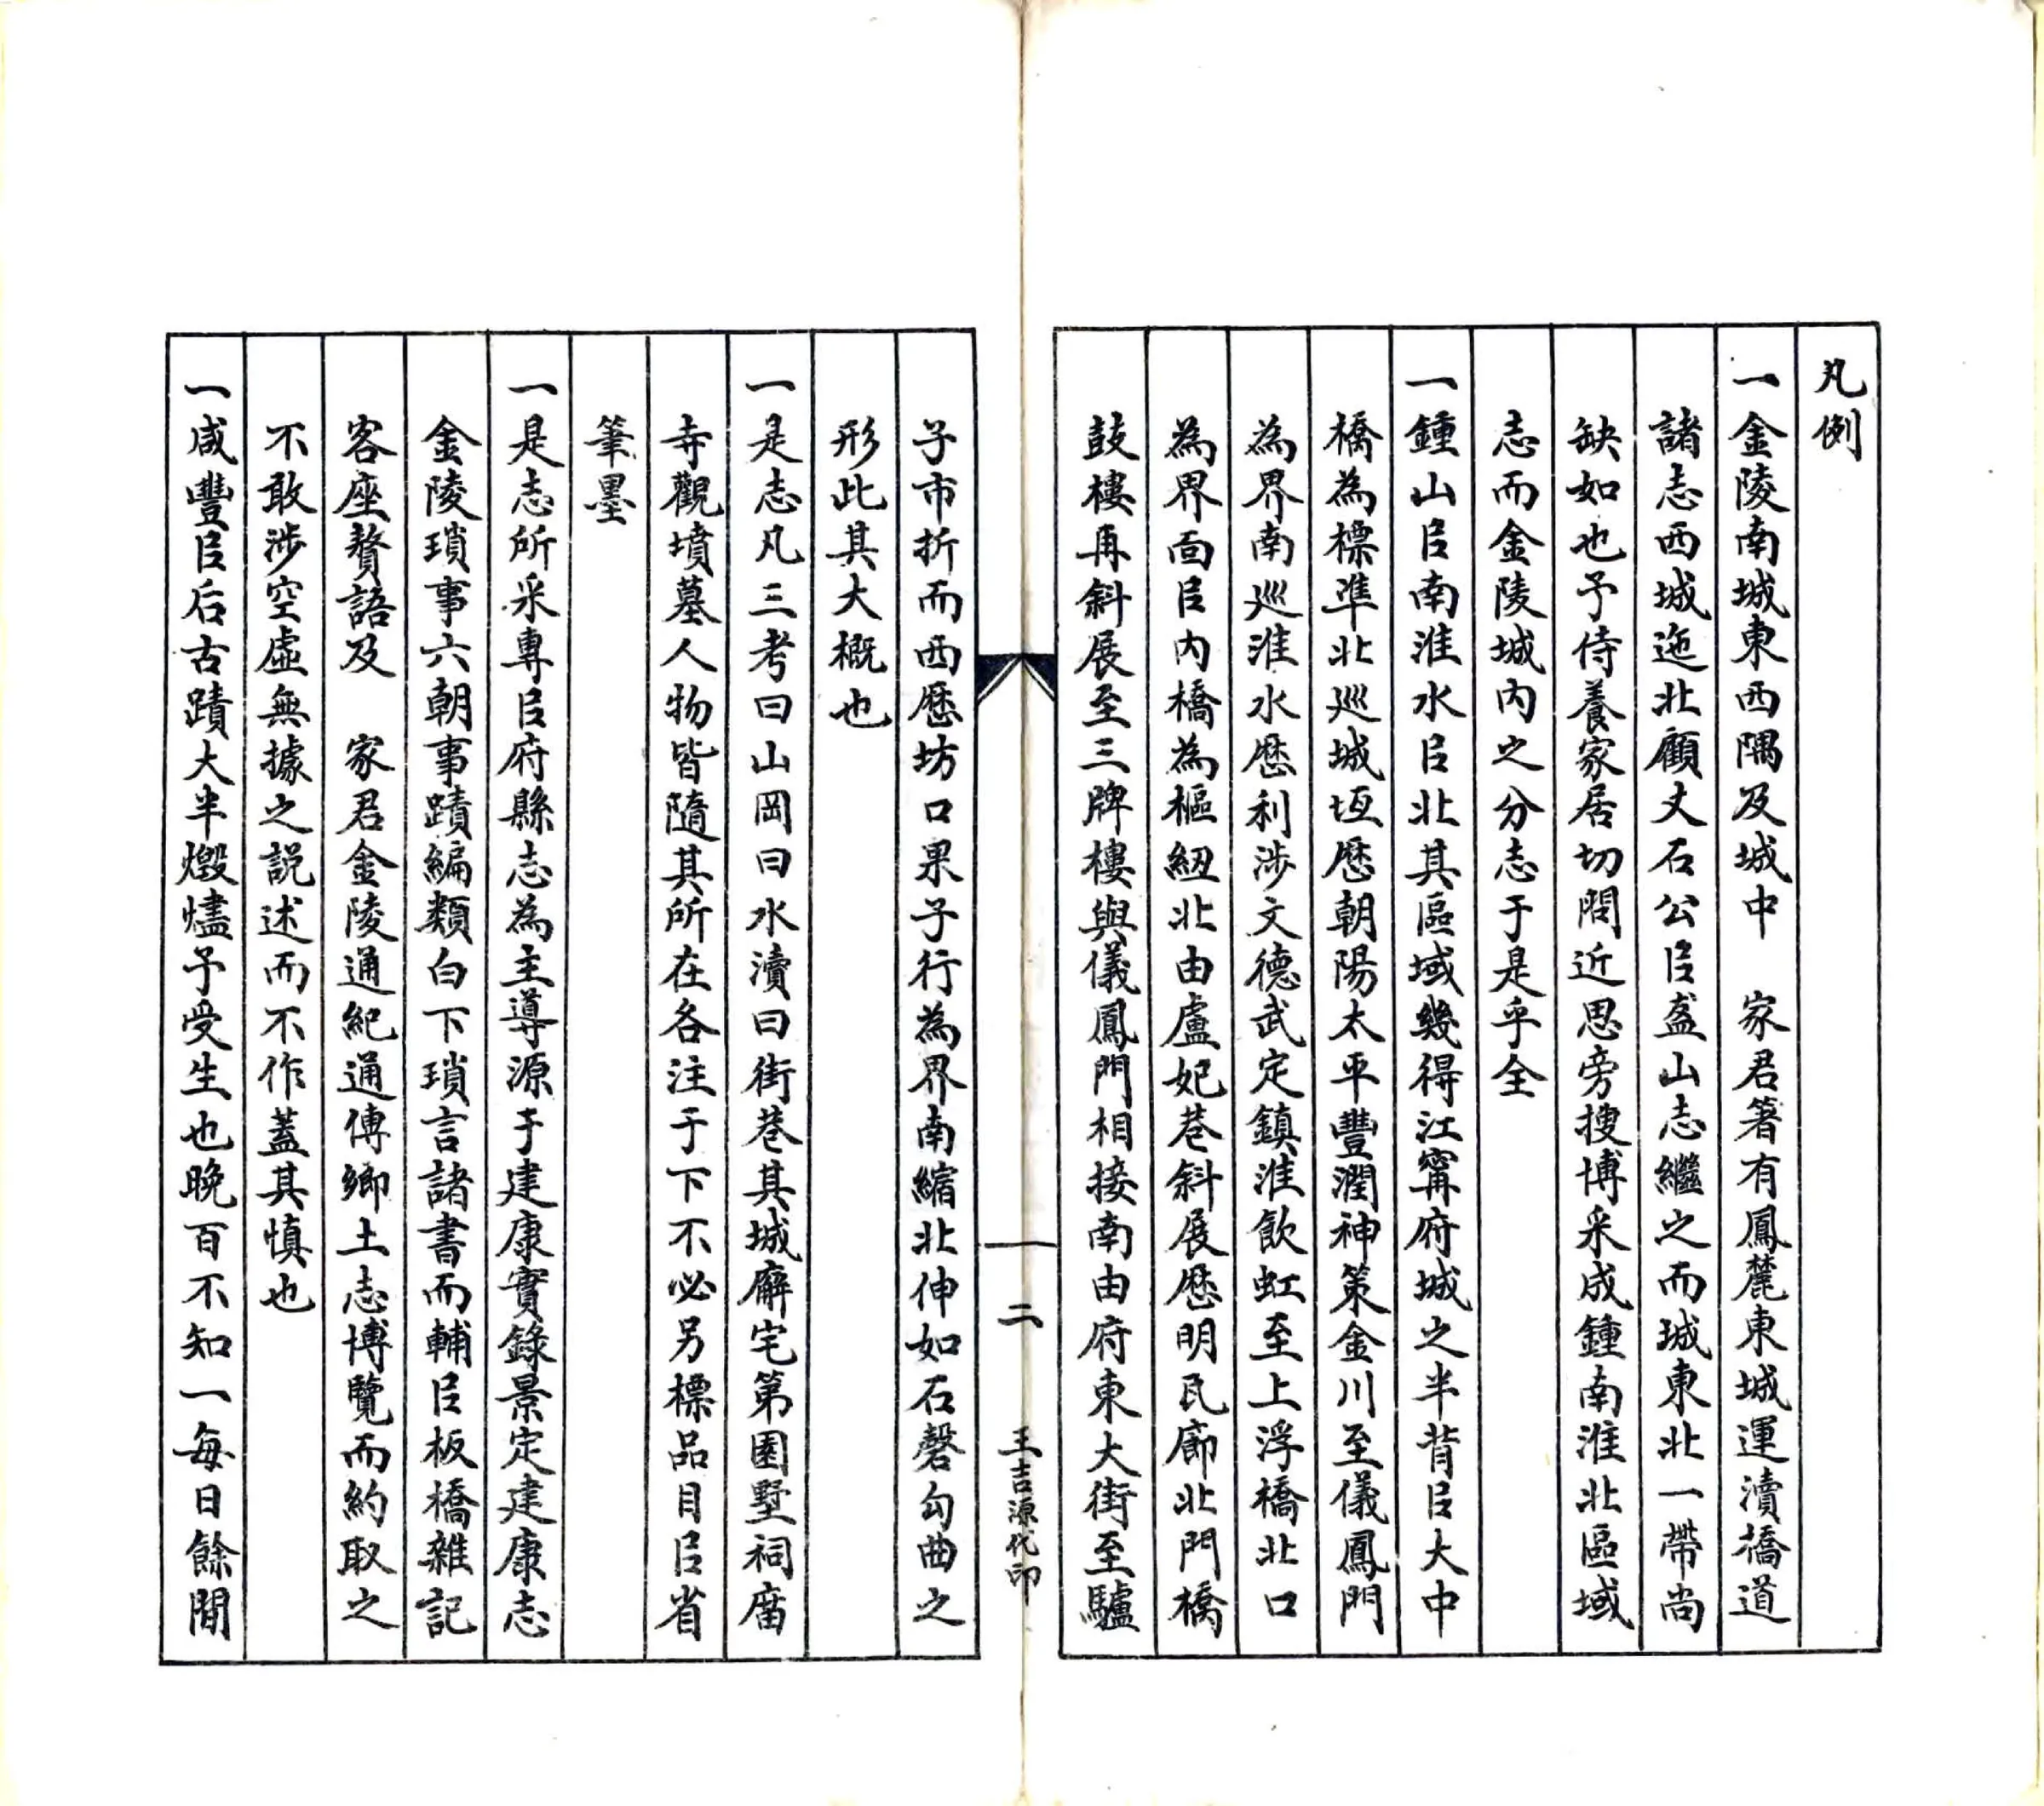 凡例
一金陵南城東西隅及城中　家君箸有鳳麓東城運瀆橋道
諸志西城迤北顧丈石公㠯盋山志繼之而城東北一帶尚
缺如也予侍養家居切問近思旁搜博采成鍾南淮北區域
志而金陵城內之分志于是乎全
一鍾山㠯南淮水㠯北其區域幾得江甯府城之半背㠯大中
橋為標準北巡城垣歷朝陽太平豐潤神策金川至儀鳳門
為界南巡淮水歷利涉文德武定鎮淮飲虹至上浮橋北口
為界面㠯內橋為樞紐北由盧妃巷斜展歷明瓦廊北門橋
鼓樓再斜展至三牌樓與儀鳳門相接南由府東大街至驢
二
王吉源代印
子市折而西歷坊口果子行為界南縮北伸如石磬句曲之
形此其大概也
一是志凡三考曰山岡曰水瀆曰街巷其城廨宅第園墅祠庙
寺觀墳墓人物皆隨其所在各注于下不必另標品目㠯省
筆墨
一是志所采專㠯府縣志為主導源于建康實錄景定建康志
金陵瑣事六朝事蹟編類白下瑣言諸書而輔㠯板橋雜記
客座贅語及　家君金陵通紀通傳鄉土志博覽而約取之
不敢涉空虛無據之說述而不作蓋其慎也
一咸豐㠯后古蹟大半燬燼予受生也晚百不知一每日餘閒